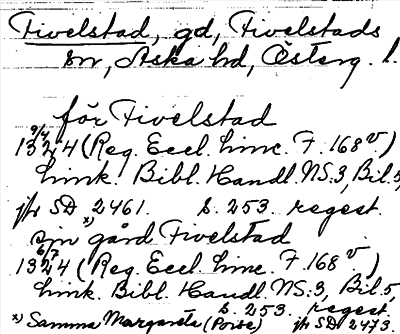 Fivelstad, gd, Fivelstads
sn, Aska hd, Österg. l.
för Fivelstad
9/4
1324 (Reg. Eccl. Linc. F. 168 v.)
Link. Bibl. Handl. NS:3, Bil.5,
jfr SD 2461. s. 253. regest.
x)
sin gård Fivelstad
6/7
1324 (Reg. Eccl. Linc. F. 168 v.)
Link. Bibl. Handl. NS:3, Bil.5,
s. 253. regest.
x) Samma Margareta (Porse) jfr SD 2473.